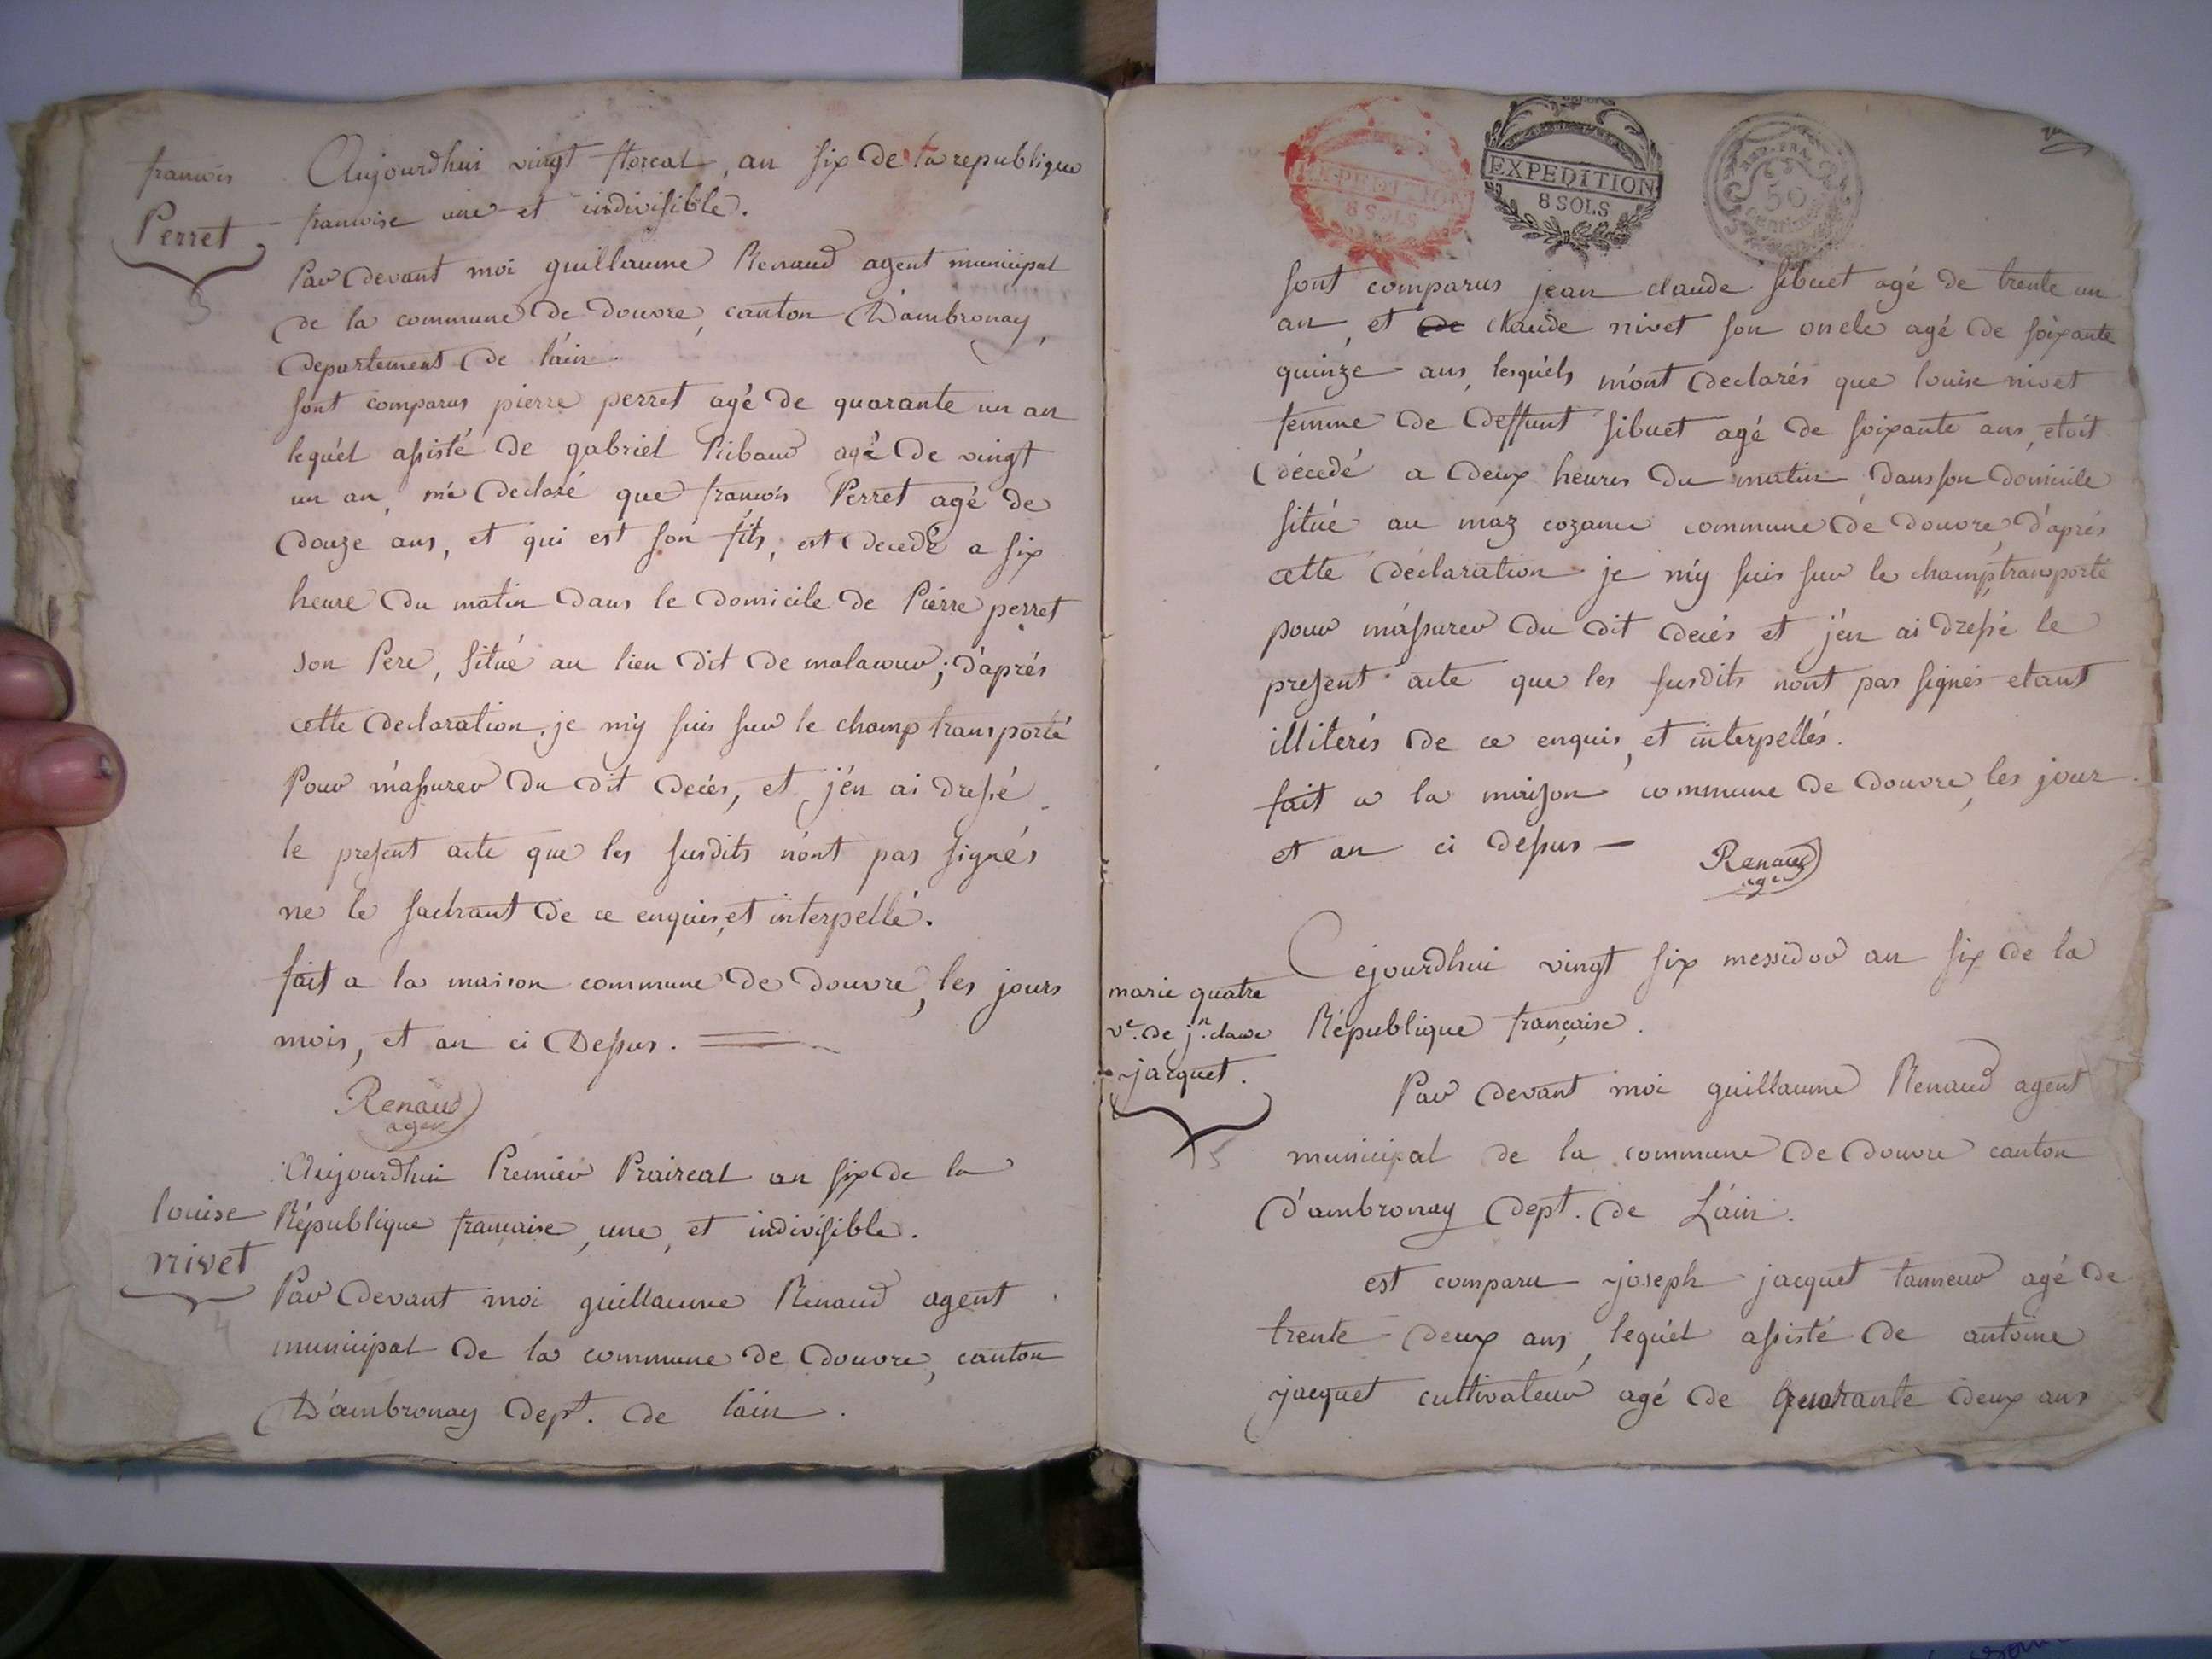 francois
Perret
3
Aujourdhui vingt floreal, an six de la republique
francoise une et indivisible.
Par devant moi guillaume Renaud agent municipal
de la commune de douvre, canton D'ambronay,
departement de l'ain.
sont comparus pierre perret agé de quarante un an
lequél assisté de gabriel Ribaud agé de vingt
un an, m'a declaré que francois Perret agé de
douze ans, et qui est son fils, est decedé a six
heure du matin dans le domicile de Pierre perret
son Pere, situé au lieu dit de malacour; d'aprés
cette declaration, je m'y suis sur le champ transporté
Pour m'assurer du dit decés, et j'én ai dressé
le present acte que les susdits n'ont pas signés
ne le sachant de ce enquis, et interpellé.
fait a la maison commune de douvre, les jours
mois, et an ci Dessus.
Renaud
agent
louise
nivet
4
Aujourdhui Premier Praireal an six de la
République francaise, une, et indivisible.
Par devant moi guillaume Renaud agent
municipal de la commune de douvre, canton
D'ambronay dept. de l'ain.
EXPEDITION
8 SOLS
EXPEDITION
8 SOLS
REP. FRA.
50
Centimes
sont comparus jean claude sibuet agé de trente un
an, et de claude nivet son oncle agé de soixante
quinze ans, lesquéls m'ont declarés que louise nivet
femme de deffunt sibuet agé de soixante ans, etoit
décedé a deux heures du matin dans son domicile
situé au maz cozance commune de douvre, d'aprés
cette déclaration je m'y suis sur le champ transporté
pour m'assurer du dit decés et j'én ai dressé le
present acte que les susdits n'ont pas signés etant
illiterés de ce enquis, et interpellés.
fait a la maison commune de douvre, les jour
et an ci dessus —
Renaud
agent
marie quatre
ve. de jn. claude
jacquet.
5
Cejourdhui vingt six messidor an six de la
République française.
Par devant moi guillaume Renaud agent
municipal de la commune de douvre canton
d'ambronay dept. de L'ain.
est comparu joseph jacquet tanneur agé de
trente deux ans, lequél assisté de antoine
jacquet cultivateur agé de quarante deux ans